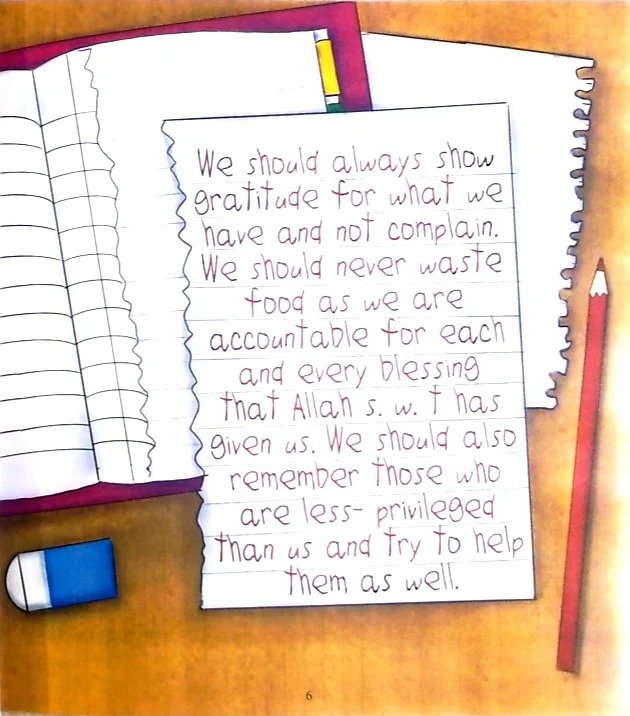 We should always show
gratitude for what we
have and not complain.
We should never waste
food as we are
accountable for each
and every blessing
that Allah s. w. t has
given us. We should also
remember those who
are less- privileged
than us and try to help
them as well.
6